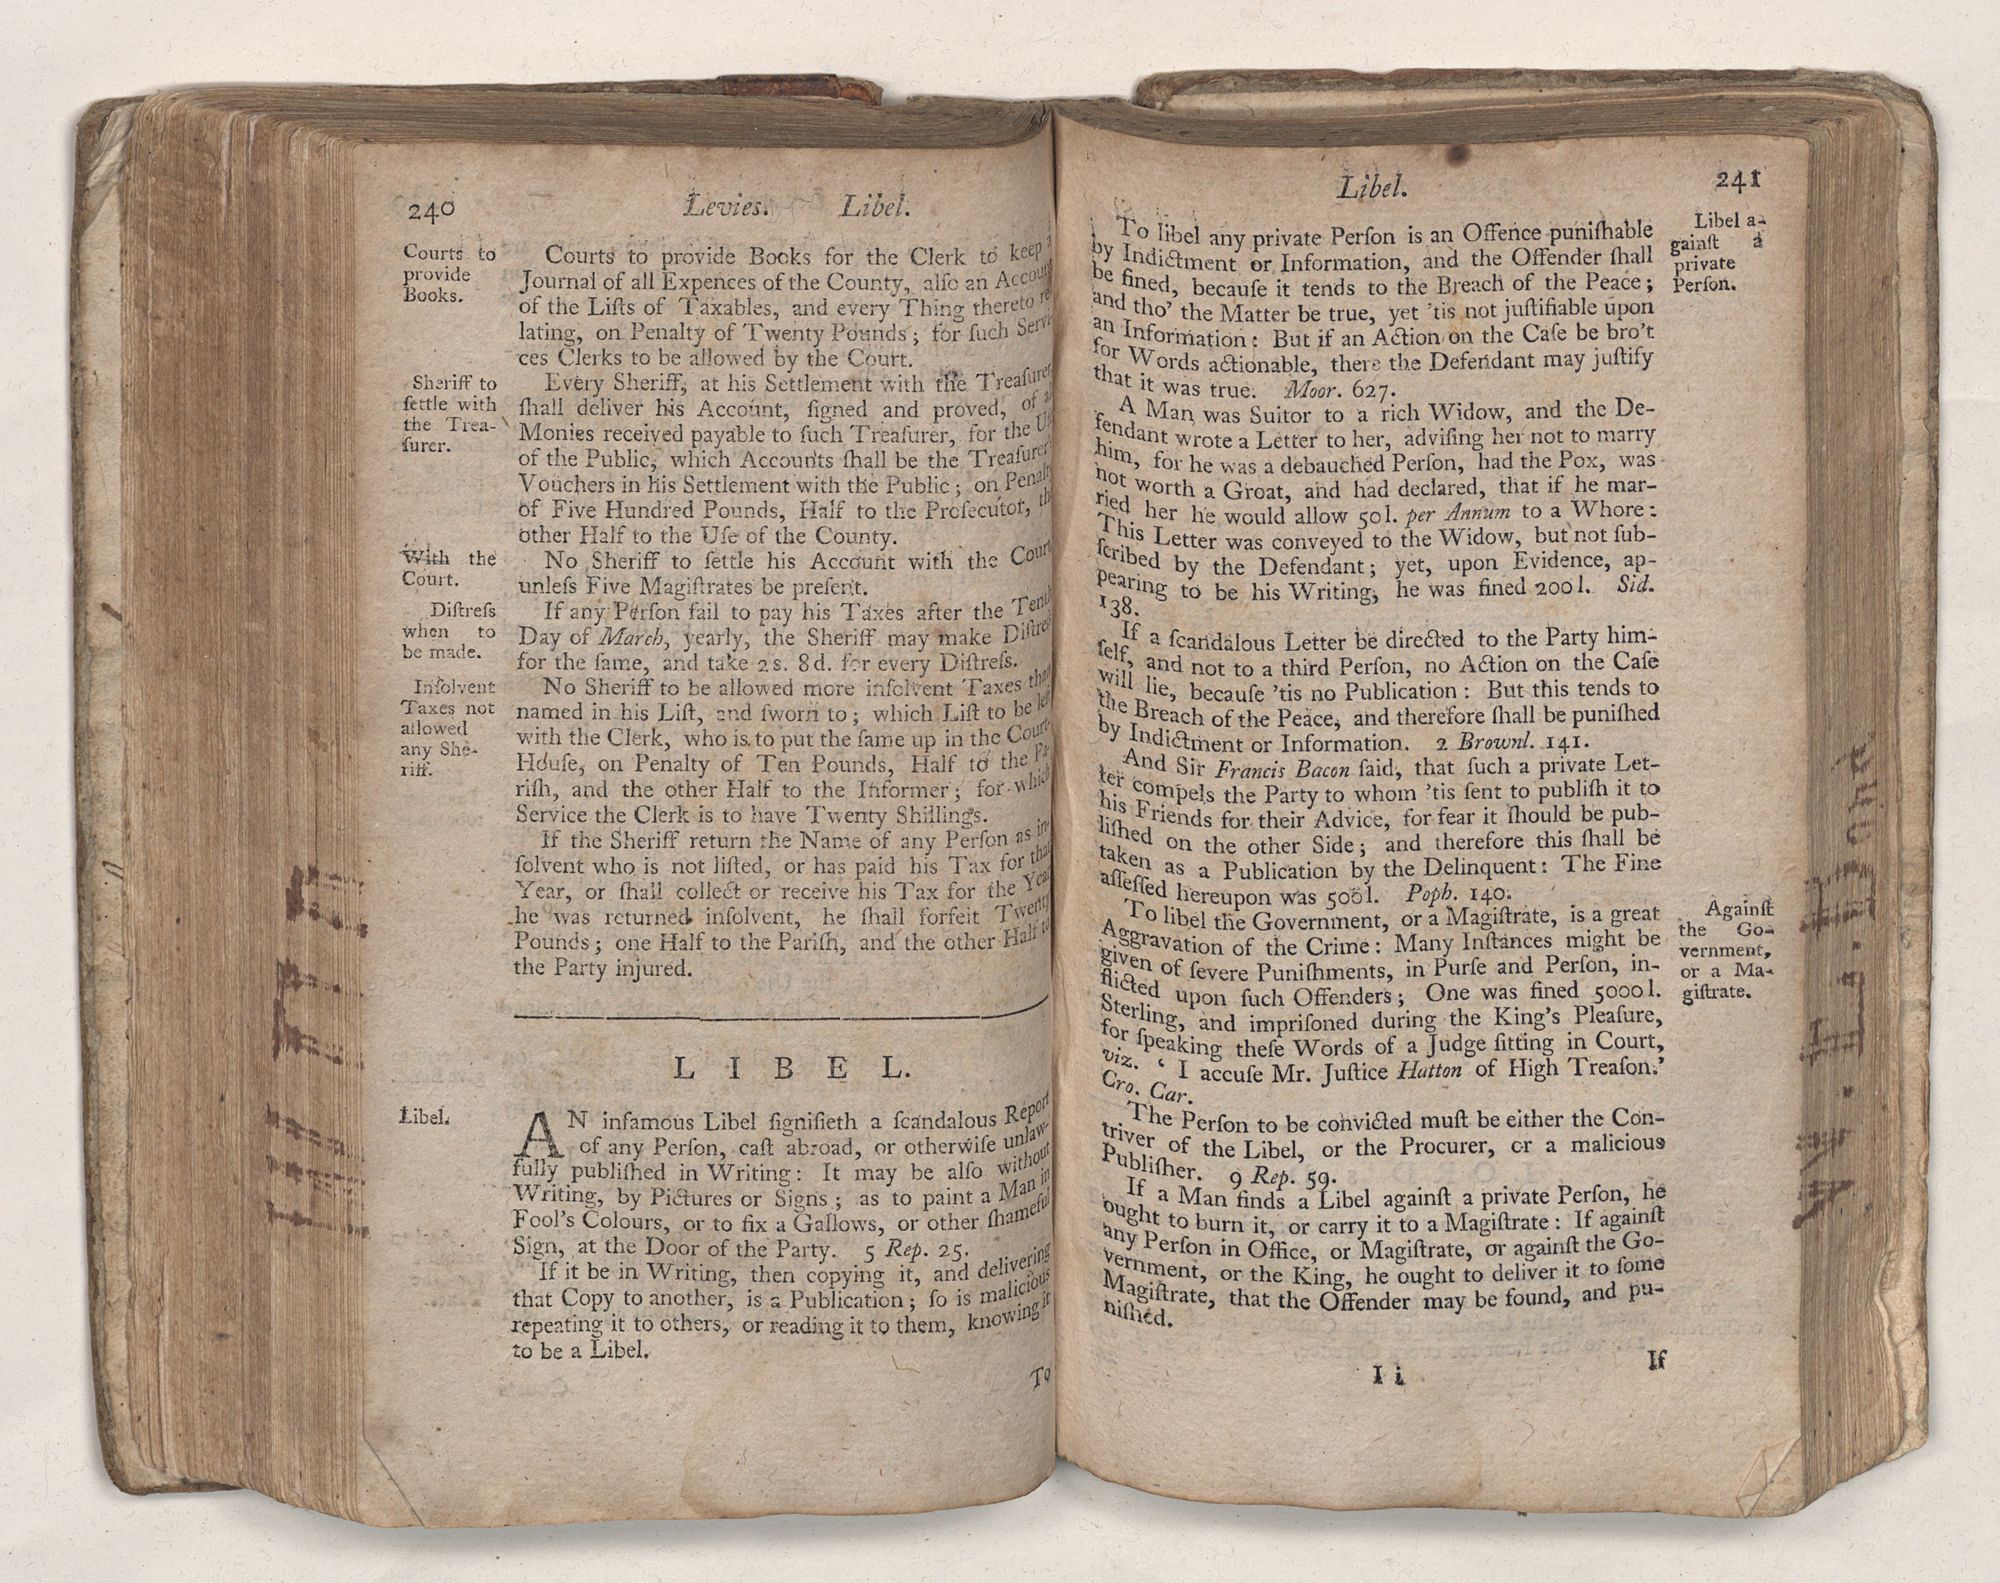 240
Levies. Libel.
Courts to
provide
Books.
Courts to provide Books for the Clerk to keep a
Journal of all Expences of the County, alſo an Account
of the Liſts of Taxables, and every Thing thereto re-
lating, on Penalty of Twenty Pounds; for ſuch Servi-
ces Clerks to be allowed by the Court.
Sheriff to
ſettle with
the Trea-
ſurer.
Every Sheriff, at his Settlement with the Treaſurer,
ſhall deliver his Account, ſigned and proved, of all
Monies received payable to ſuch Treaſurer, for the Uſe
of the Public, which Accounts ſhall be the Treaſurer's
Vouchers in his Settlement with the Public; on Penalty
of Five Hundred Pounds, Half to the Proſecutor, the
other Half to the Uſe of the County.
With the
Court.
No Sheriff to ſettle his Account with the Court
unleſs Five Magiſtrates be preſent.
Diſtreſs
when to
be made.
If any Perſon fail to pay his Taxes after the Tenth
Day of March, yearly, the Sheriff may make Diſtreſs
for the ſame, and take 2 s. 8 d. for every Diſtreſs.
Inſolvent
Taxes not
allowed
any She-
riff.
No Sheriff to be allowed more inſolvent Taxes than
named in his Liſt, and ſworn to; which Liſt to be left
with the Clerk, who is to put the ſame up in the Court-
Houſe, on Penalty of Ten Pounds, Half to the Pa-
riſh, and the other Half to the Informer; for which
Service the Clerk is to have Twenty Shillings.
If the Sheriff return the Name of any Perſon as in-
ſolvent who is not liſted, or has paid his Tax for that
Year, or ſhall collect or receive his Tax for the Year
he was returned inſolvent, he ſhall forfeit Twenty
Pounds; one Half to the Pariſh, and the other Half to
the Party injured.
LIBEL.
Libel.
AN infamous Libel ſigniſieth a ſcandalous Report
of any Perſon, caſt abroad, or otherwiſe unlaw-
fully publiſhed in Writing: It may be alſo without
Writing, by Pictures or Signs; as to paint a Man in
Fool's Colours, or to fix a Gallows, or other ſhameful
Sign, at the Door of the Party. 5 Rep. 25.
If it be in Writing, then copying it, and delivering
that Copy to another, is a Publication; ſo is malicious
repeating it to others, or reading it to them, knowing it
to be a Libel.
To
Libel.
241
To libel any private Perſon is an Offence puniſhable
by Indictment or Information, and the Offender ſhall
be fined, becauſe it tends to the Breach of the Peace;
and tho' the Matter be true, yet 'tis not juſtifiable upon
an Information: But if an Action on the Caſe be bro't
for Words actionable, there the Defendant may juſtify
that it was true. Moor. 627.
Libel a-
gainſt a
private
Perſon.
A Man was Suitor to a rich Widow, and the De-
fendant wrote a Letter to her, adviſing her not to marry
him, for he was a debauched Perſon, had the Pox, was
not worth a Groat, and had declared, that if he mar-
ried her he would allow 50 l. per Annum to a Whore:
This Letter was conveyed to the Widow, but not ſub-
ſcribed by the Defendant; yet, upon Evidence, ap-
pearing to be his Writing, he was fined 200 l. Sid.
138.
If a ſcandalous Letter be directed to the Party him-
ſelf, and not to a third Perſon, no Action on the Caſe
will lie, becauſe 'tis no Publication: But this tends to
the Breach of the Peace, and therefore ſhall be puniſhed
by Indictment or Information. 2 Brownl. 141.
And Sir Francis Bacon ſaid, that ſuch a private Let-
ter compels the Party to whom 'tis ſent to publiſh it to
his Friends for their Advice, for fear it ſhould be pub-
liſhed on the other Side; and therefore this ſhall be
taken as a Publication by the Delinquent: The Fine
aſſeſſed hereupon was 500 l. Poph. 140.
To libel the Government, or a Magiſtrate, is a great
Aggravation of the Crime: Many Inſtances might be
given of ſevere Puniſhments, in Purſe and Perſon, in-
flicted upon ſuch Offenders; One was fined 5000 l.
Sterling, and impriſoned during the King's Pleaſure,
for ſpeaking theſe Words of a Judge ſitting in Court,
viz. ‘ I accuſe Mr. Juſtice Hutton of High Treaſon.’
Cro. Car.
Againſt
the Go-
vernment,
or a Ma-
giſtrate.
The Perſon to be convicted muſt be either the Con-
triver of the Libel, or the Procurer, or a malicious
Publiſher. 9 Rep. 59.
If a Man finds a Libel againſt a private Perſon, he
ought to burn it, or carry it to a Magiſtrate: If againſt
any Perſon in Office, or Magiſtrate, or againſt the Go-
vernment, or the King, he ought to deliver it to ſome
Magiſtrate, that the Offender may be found, and pu-
niſhed.
I i
If